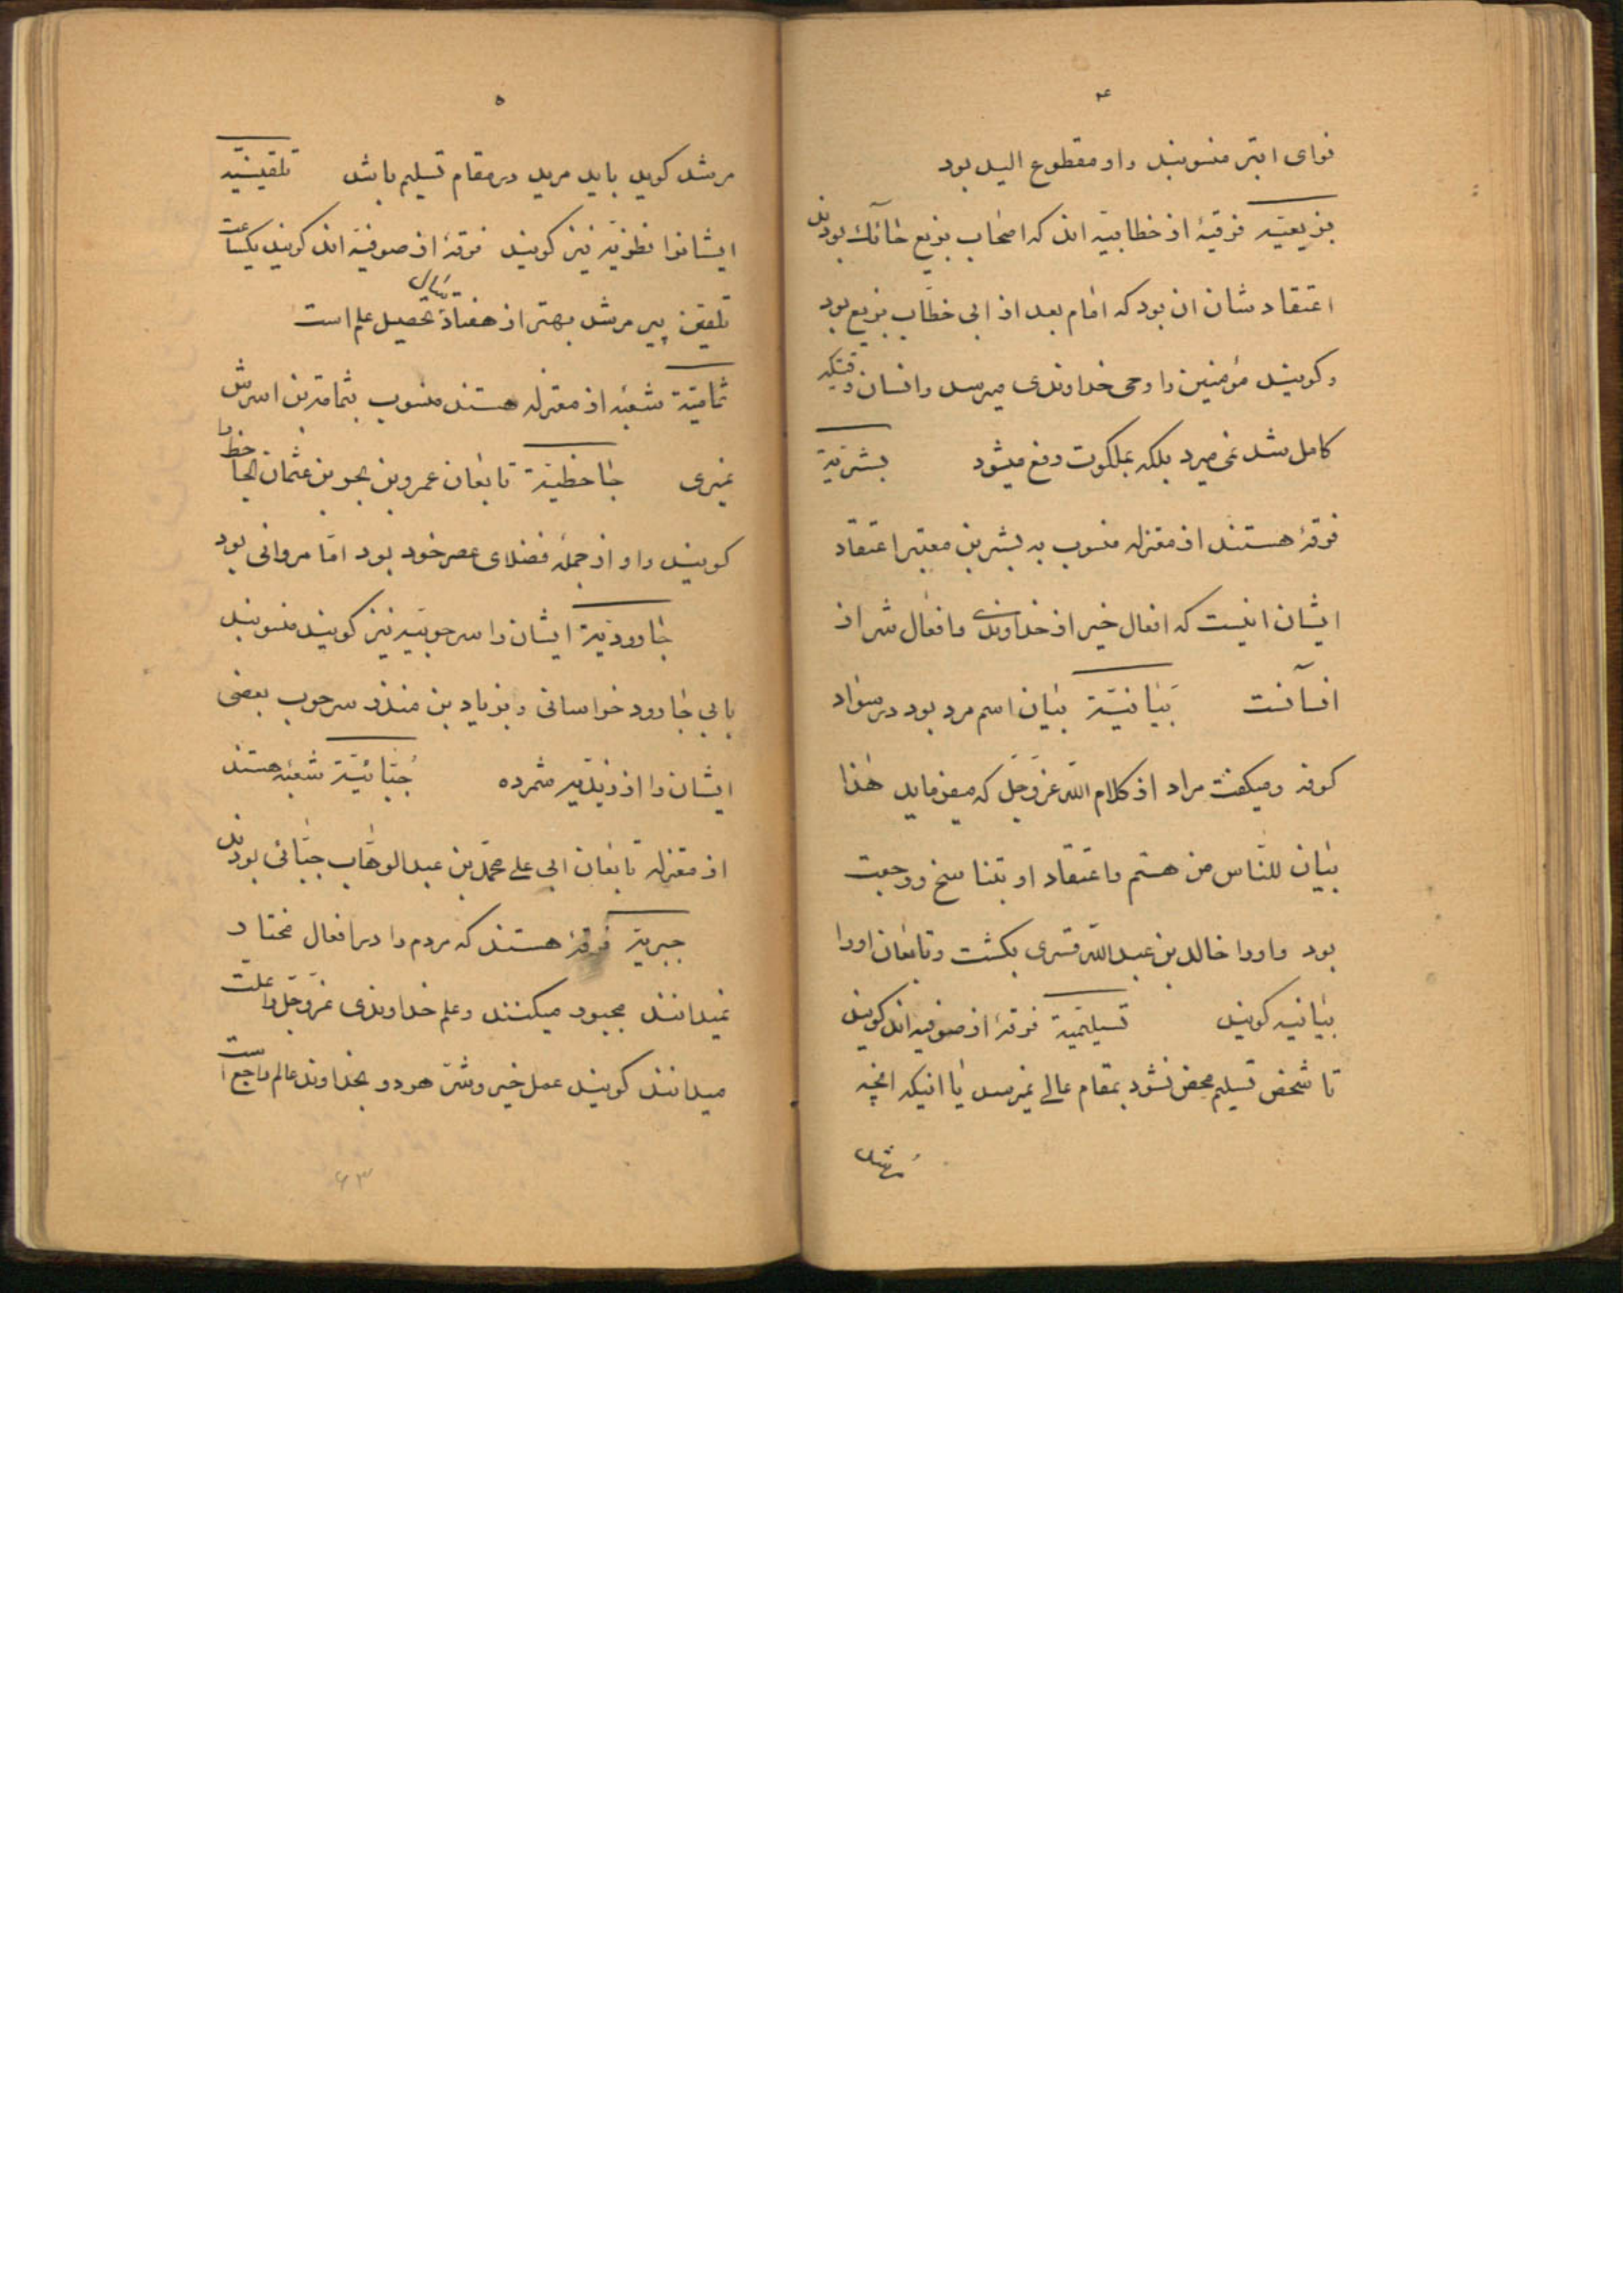 ۴
نوای ابتر منسوبند و او مقطوع الید بود
بزیعیّه فرقهٔ از خطابیّه اند که اصحاب بزیع حائک بودند
اعتقاد شان ان بود که امام بعد از ابی خطّاب بزیع بود
و کویند مؤمنین را وحی خداوندی میرسد و انسان وقتیکه
کامل شد نمی میرد بلکه بملکوت رفع میشود بشریّة
فرقهٔ هستند از معتزله منسوب به بشر بن معتبر اعتقاد
ایشان اینست که افعال خیر از خداوندی و افعال شر از
انسآنست بَیٰانیّة بیٰان اسم مرد بود در سواد
کوفه و میکفت مراد از کلام اللّه عزّ وجلّ که میفرماید هٰذا
بیٰان للنّاس من هستم و اعتقاد او بتناسخ و رجعت
بود و اورا خالد بن عبد اللّه قسری بکشت و تابعٰان اورا
بیٰانیه کویند تسیلیمیّة فرقهٔ از صوفیه اند کویند
تا شخص تسلیم محض نشود بمقام عالی نمیرسد یٰا انیکه انچه
مرشد
۵
مرشد کوید باید مرید در مقام تسلیم باشد تلقینیّه
ایشانرا نظریّه نیز کویند فرقهٔ از صوفیّه اند کویند یکساعت
تلقین پیر مرشد بهتر از هفتاد سال تحصیل علم است
ثمامیّة شعبهٔ از معتزله هستند منسوب بثمامة بن اسرش
نمیری جٰاحظیّة تابعٰان عمرو بن بحر بن عثمان جٰاحظ را
کویند و او از جملهٔ فضلای عصر خود بود امّا مروانی بود
جٰارودیّة ایشان را سرحوبیّه نیز کویند منسوبند
بابی جٰارود خراسانی و بزیاد بن منذر سرحوب بعضی
ایشان را از زیدّیه شمرده جُبّائیّة شعبهٔ هستند
از معتزله تابعٰان ابی علی محمّد بن عبد الوهّاب جبّائی بودند
جبریّة فرقهٔ هستند که مردم را در افعال مختار
نمیدانند مجبور میکنند و علم خداوندی عزّ وجلّ را علّت
میدانند کویند عمل خیر و شرّ هر دو بخداوند عالم راجع است
۶۳